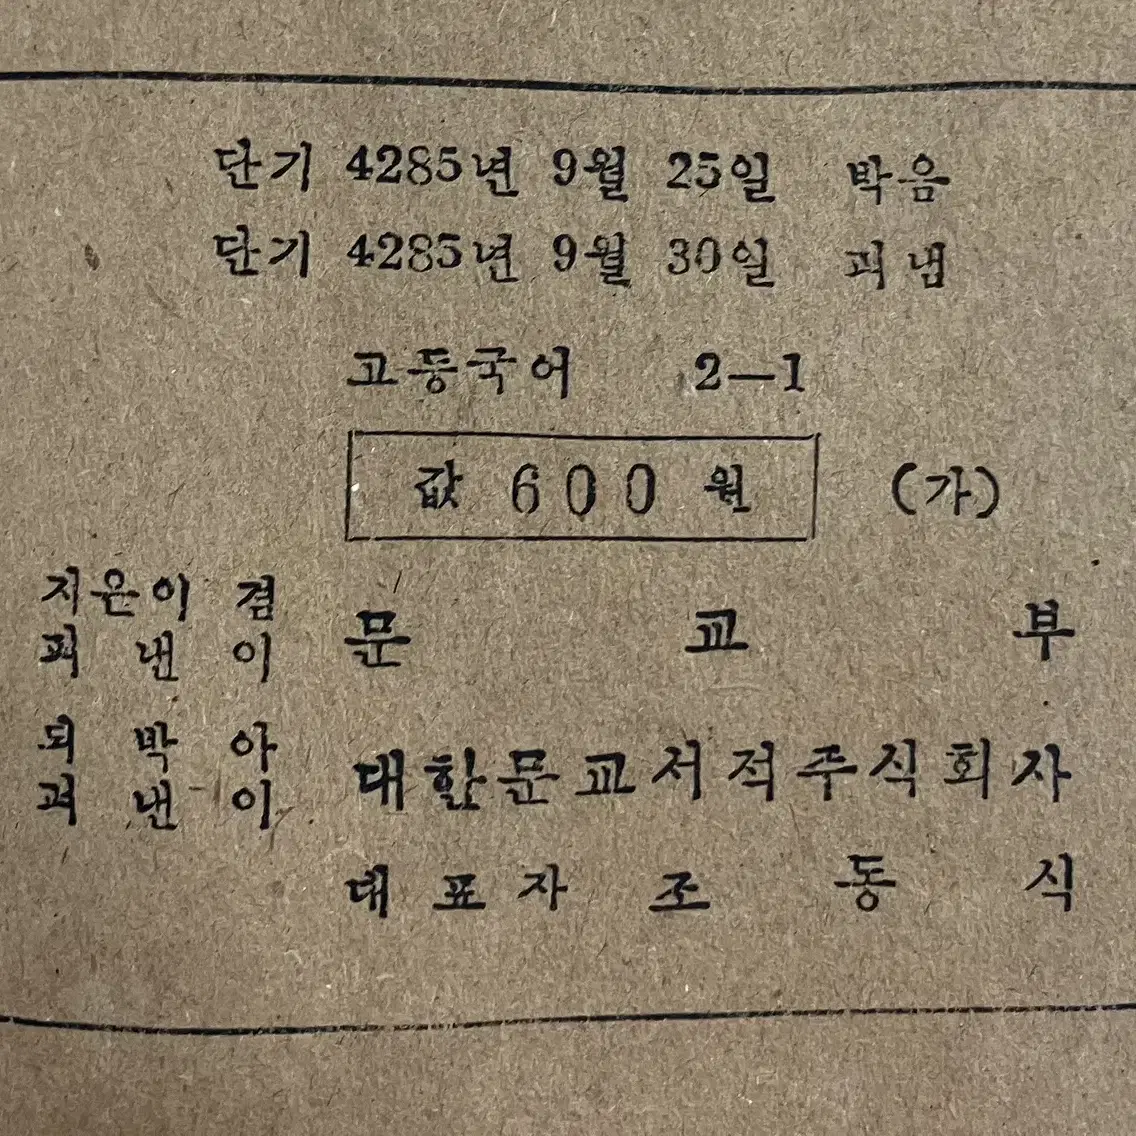 단기 4285년 9월 25일 박음
단기 4285년 9월 30일 펴냄
고등국어 2—1
값 600원 (가)
지은이 겸
펴낸이 문교부
되박아
펴낸이 대한문교서적주식회사
대표자 조동식